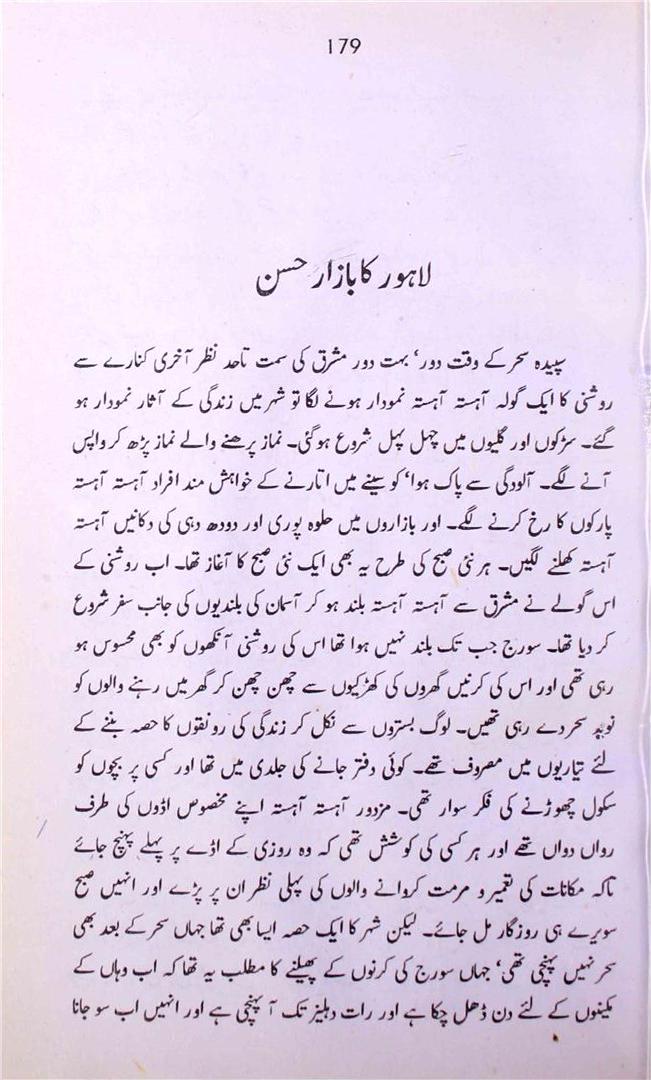 179
لاہور کا بازار حسن
سپیدہ سحر کے وقت دور‘ بہت دور مشرق کی سمت تاحد نظر آخری کنارے سے
روشنی کا ایک گولہ آہستہ آہستہ نمودار ہونے لگا تو شہر میں زندگی کے آثار نمودار ہو
گئے۔ سڑکوں اور گلیوں میں چہل پہل شروع ہوگئی۔ نماز پرھنے والے نماز پڑھ کر واپس
آنے لگے۔ آلودگی سے پاک ہوا‘ کو سینے میں اتارنے کے خواہش مند افراد آہستہ آہستہ
پارکوں کا رخ کرنے لگے۔ اور بازاروں میں حلوہ پوری اور دودھ دہی کی دکانیں آہستہ
آہستہ کھلنے لگیں۔ ہر نئی صبح کی طرح یہ بھی ایک نئی صبح کا آغاز تھا۔ اب روشنی کے
اس گولے نے مشرق سے آہستہ آہستہ بلند ہو کر آسمان کی بلندیوں کی جانب سفر شروع
کر دیا تھا۔ سورج جب تک بلند نہیں ہوا تھا اس کی روشنی آنکھوں کو بھی محسوس ہو
رہی تھی اور اس کی کرنیں گھروں کی کھڑکیوں سے چھن چھن کر گھر میں رہنے والوں کو
نوید سحر دے رہی تھیں۔ لوگ بستروں سے نکل کر زندگی کی رونقوں کا حصہ بننے کے
لئے تیاریوں میں مصروف تھے۔ کوئی دفتر جانے کی جلدی میں تھا اور کسی پر بچوں کو
سکول چھوڑنے کی فکر سوار تھی۔ مزدور آہستہ آہستہ اپنے مخصوص اڈوں کی طرف
رواں دواں تھے اور ہر کسی کی کوشش تھی کہ وہ روزی کے اڈے پر پہلے پہنچ جائے
تاکہ مکانات کی تعمیر و مرمت کروانے والوں کی پہلی نظر ان پر پڑے اور انہیں صبح
سویرے ہی روزگار مل جائے۔ لیکن شہر کا ایک حصہ ایسا بھی تھا جہاں سحر کے بعد بھی
سحر نہیں پہنچی تھی‘ جہاں سورج کی کرنوں کے پھیلنے کا مطلب یہ تھا کہ اب وہاں کے
مکینوں کے لئے دن ڈھل چکا ہے اور رات دہلیز تک آ پہنچی ہے اور انہیں اب سو جانا